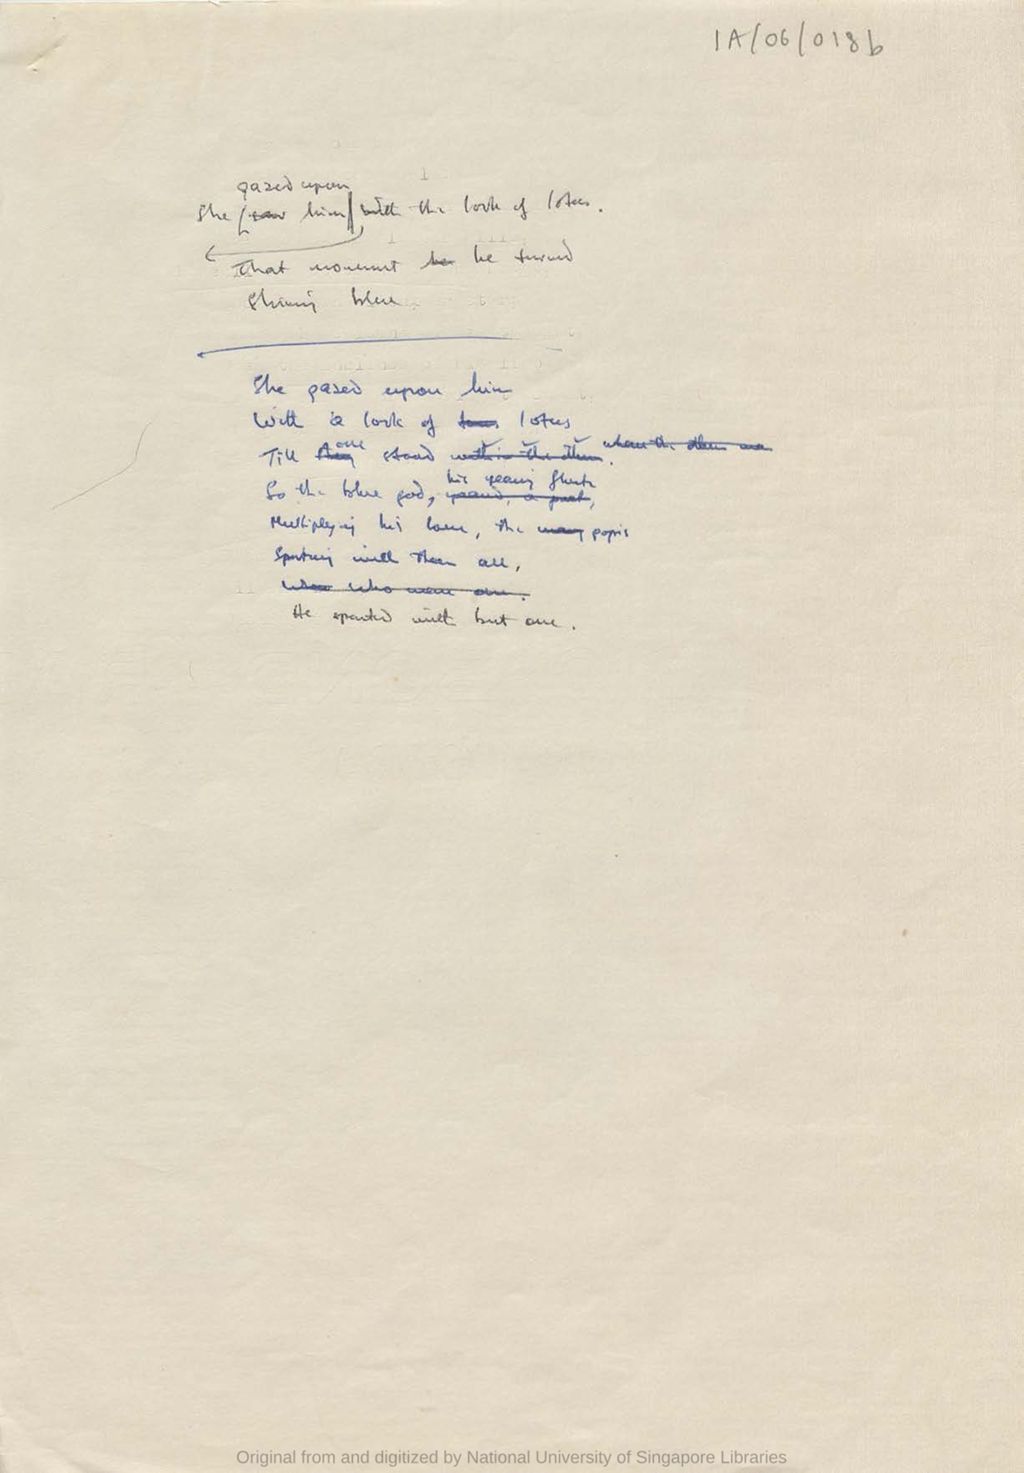 1A/06/018b
gazed upon
She saw him with the look of lotus.
That moment he he turned
Shining blue
She gazed upon him
With a look of lotus
one
Till they stood within the other. when the other
his
So the blue god,
Multiplying his love, the many gopis
Sporting with them all,
who were one.
He sported with but one.
Original from and digitized by National University of Singapore Libraries